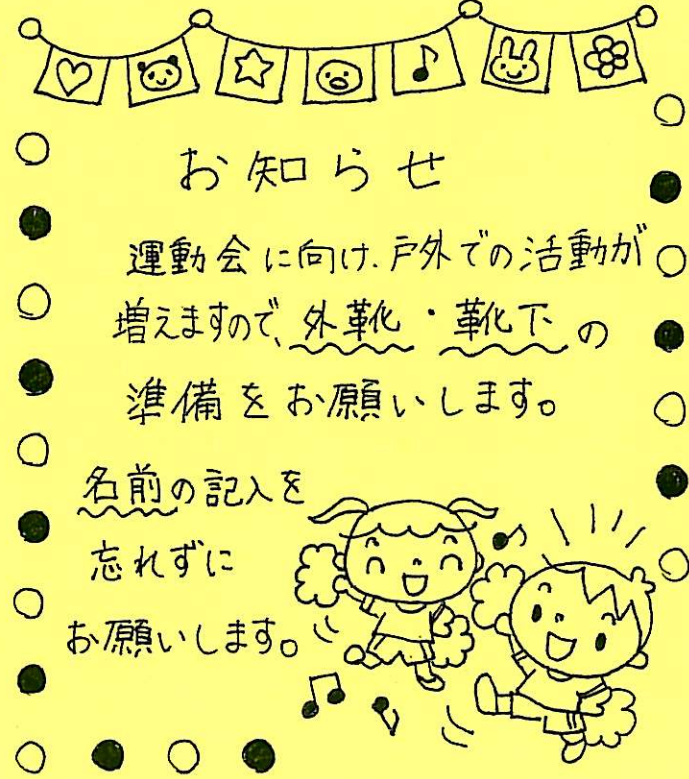 お知らせ
運動会に向け、戸外での活動が
増えますので、外靴・靴下の
準備をお願いします。
名前の記入を
忘れずに
お願いします。